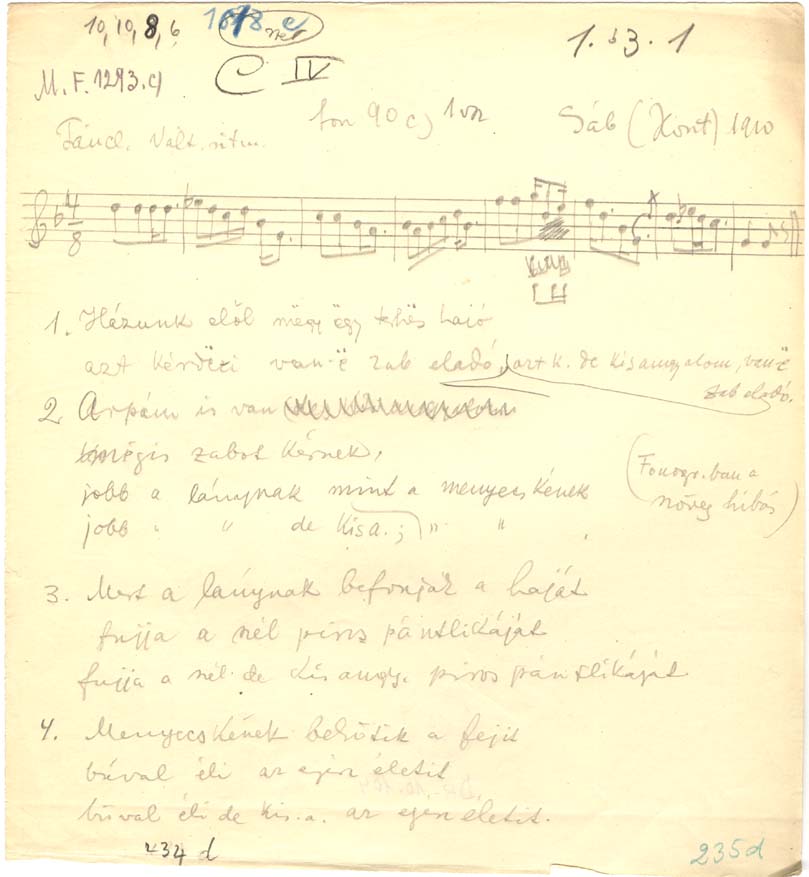 10, 10, 8, 6
1. b3. 1
M.F. 1293.c)
C IV
fon 90 c)
Sáb (Kont) 1910
Táncl. Vált. ritm.
4
8
1. Házunk elől mëgy ëgy terhës hajó
azt kérdëzi van-ë zab eladó, azt k. de kisangyalom, van-ë
zab eladó.
2. Árpám is van
mégis zabot kérnek,
jobb a lánynak mint a menyecskének
(Fonogr. ban a
jobb " " de kisa.; " "
szöveg hibás)
3. Mert a lánynak befonják a haját
fujja a szél piros pántlikáját
fujja a szél de kisangy. piros pántlikáját
4. Menyecskének bekötik a fejit
búval éli az egész életit
búval éli de kis.a. az egész életit.
234 d
235d